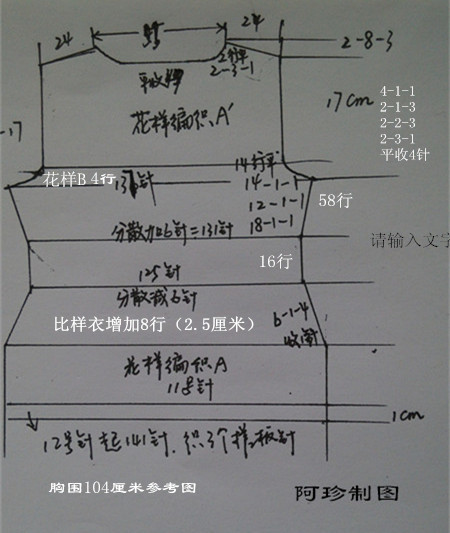 24
24
2-8-3
2行平
2-3-1
平收
17cm
花样编织A'
4-1-1
2-1-3
2-2-3
2-3-1
平收4针
-17
14行平
花样B 4行
针
14-1-1
12-1-1
18-1-1
58行
分散加6针=131针
请输入文字
16行
125针
分散减6针
比样衣增加8行（2.5厘米）
6-1-4
收
花样编织A
11号针
1cm
12号针起141针.织3个样板针
胸围104厘米参考图
阿珍制图